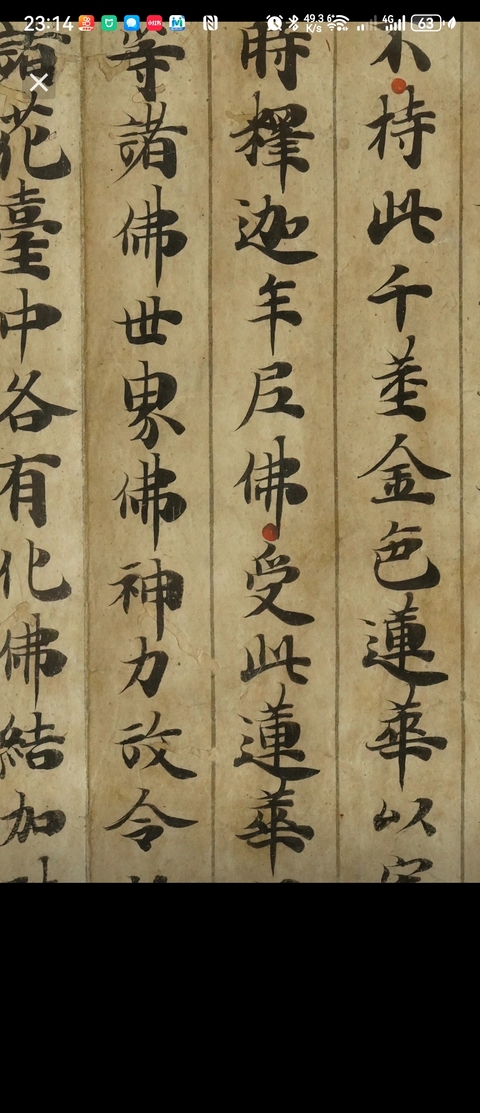 23:14 49.3 K/s 6 4G 63
持此千莖金色蓮華以
時釋迦牟尼佛受此蓮華
等諸佛世界佛神力故令
諸花臺中各有化佛結加